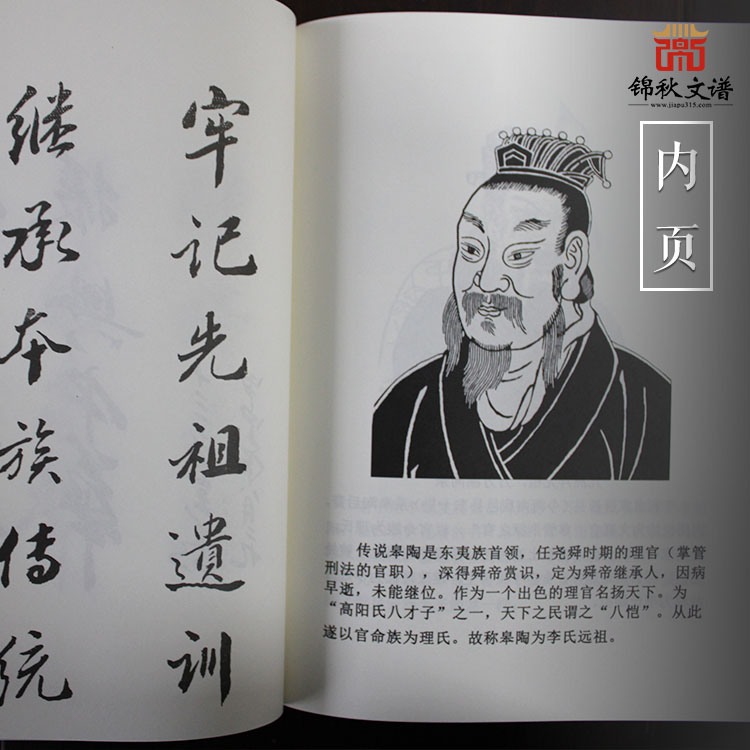 牢记先祖遗训
继承本族传统
锦秋文谱
www.jiapu315.com
内页
传说皋陶是东夷族首领，任尧舜时期的理官（掌管
刑法的官职），深得舜帝赏识，定为舜帝继承人，因病
早逝，未能继位。作为一个出色的理官名扬天下。为
“高阳氏八才子”之一，天下之民谓之“八恺”。从此
遂以官命族为理氏。故称皋陶为李氏远祖。